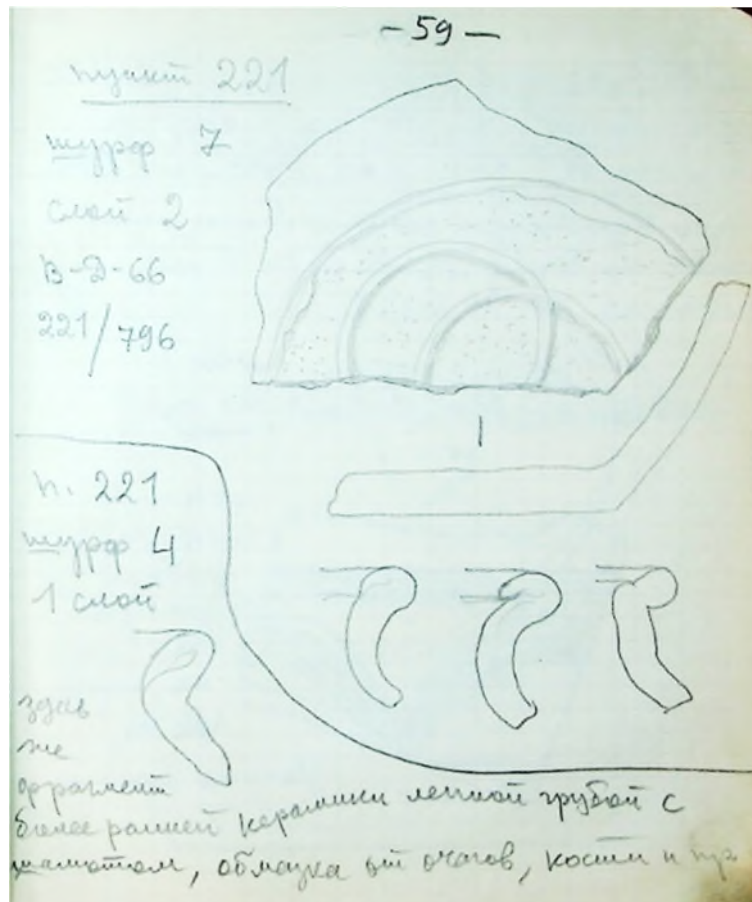 -59-
пункт 221
шурф 7
слой 2
В-Д-66
221/796
п. 221
шурф 4
1 слой
здесь
же
фрагмент
более ранней керамики лепной грубой с
шамотом, обмазка от очагов, кости и пр